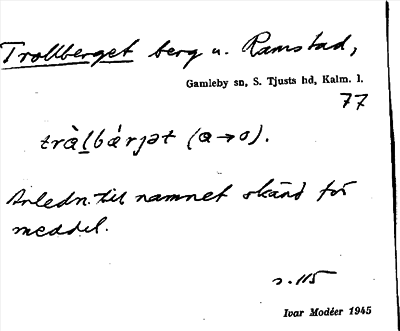 Trollberget berg u. Ramstad,
Gamleby sn, S. Tjusts hd, Kalm. l.
77
trὰl̠bάrjət (a→o).
Anledn. till namnet okänd för
meddel.
s. 115
Ivar Modéer 1945